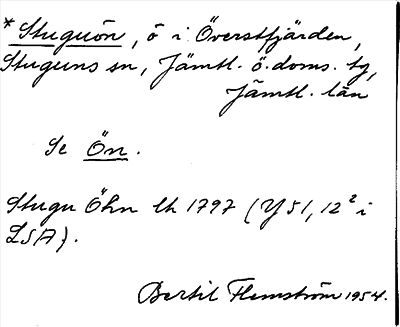 * Stuguön, ö i Överstfjärden,
Stuguns sn, Jämtl. ö. doms. tg,
Jämtl. län
Se Ön.
Stugu Öhn lh 1797 (Y51, 12² i
LSA).
Bertil Flemström 1954.